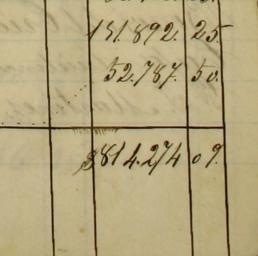 131.892. 25.
52.787. 50.
3814.274 09.